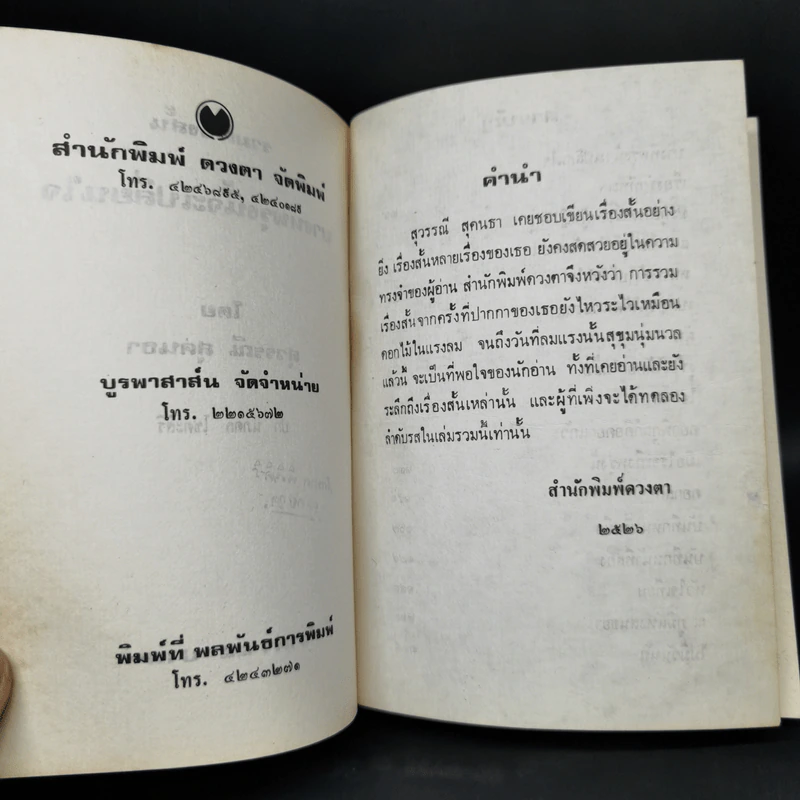 สำนักพิมพ์ ดวงตา จัดพิมพ์
โทร. ๔๒๔๖๘๙๕, ๔๒๔๐๑๘๙
บูรพาสาส์น จัดจำหน่าย
โทร. ๒๒๑๕๖๗๒
พิมพ์ที่ พลพันธ์การพิมพ์
โทร. ๔๒๔๓๒๗๑
คำนำ
สุวรรณี สุคนธา เคยชอบเขียนเรื่องสั้นอย่าง
ยิ่ง เรื่องสั้นหลายเรื่องของเธอ ยังคงสดสวยอยู่ในความ
ทรงจำของผู้อ่าน สำนักพิมพ์ดวงตาจึงหวังว่า การรวม
เรื่องสั้นจากครั้งที่ปากกาของเธอยังไหวระไวเหมือน
ดอกไม้ในแรงลม จนถึงวันที่ลมแรงนั้นสุขุมนุ่มนวล
แล้วนี้ จะเป็นที่พอใจของนักอ่าน ทั้งที่เคยอ่านและยัง
ระลึกถึงเรื่องสั้นเหล่านั้น และผู้ที่เพิ่งจะได้ทดลอง
ลำดับรสในเล่มรวมนี้เท่านั้น
สำนักพิมพ์ดวงตา
๒๕๒๖